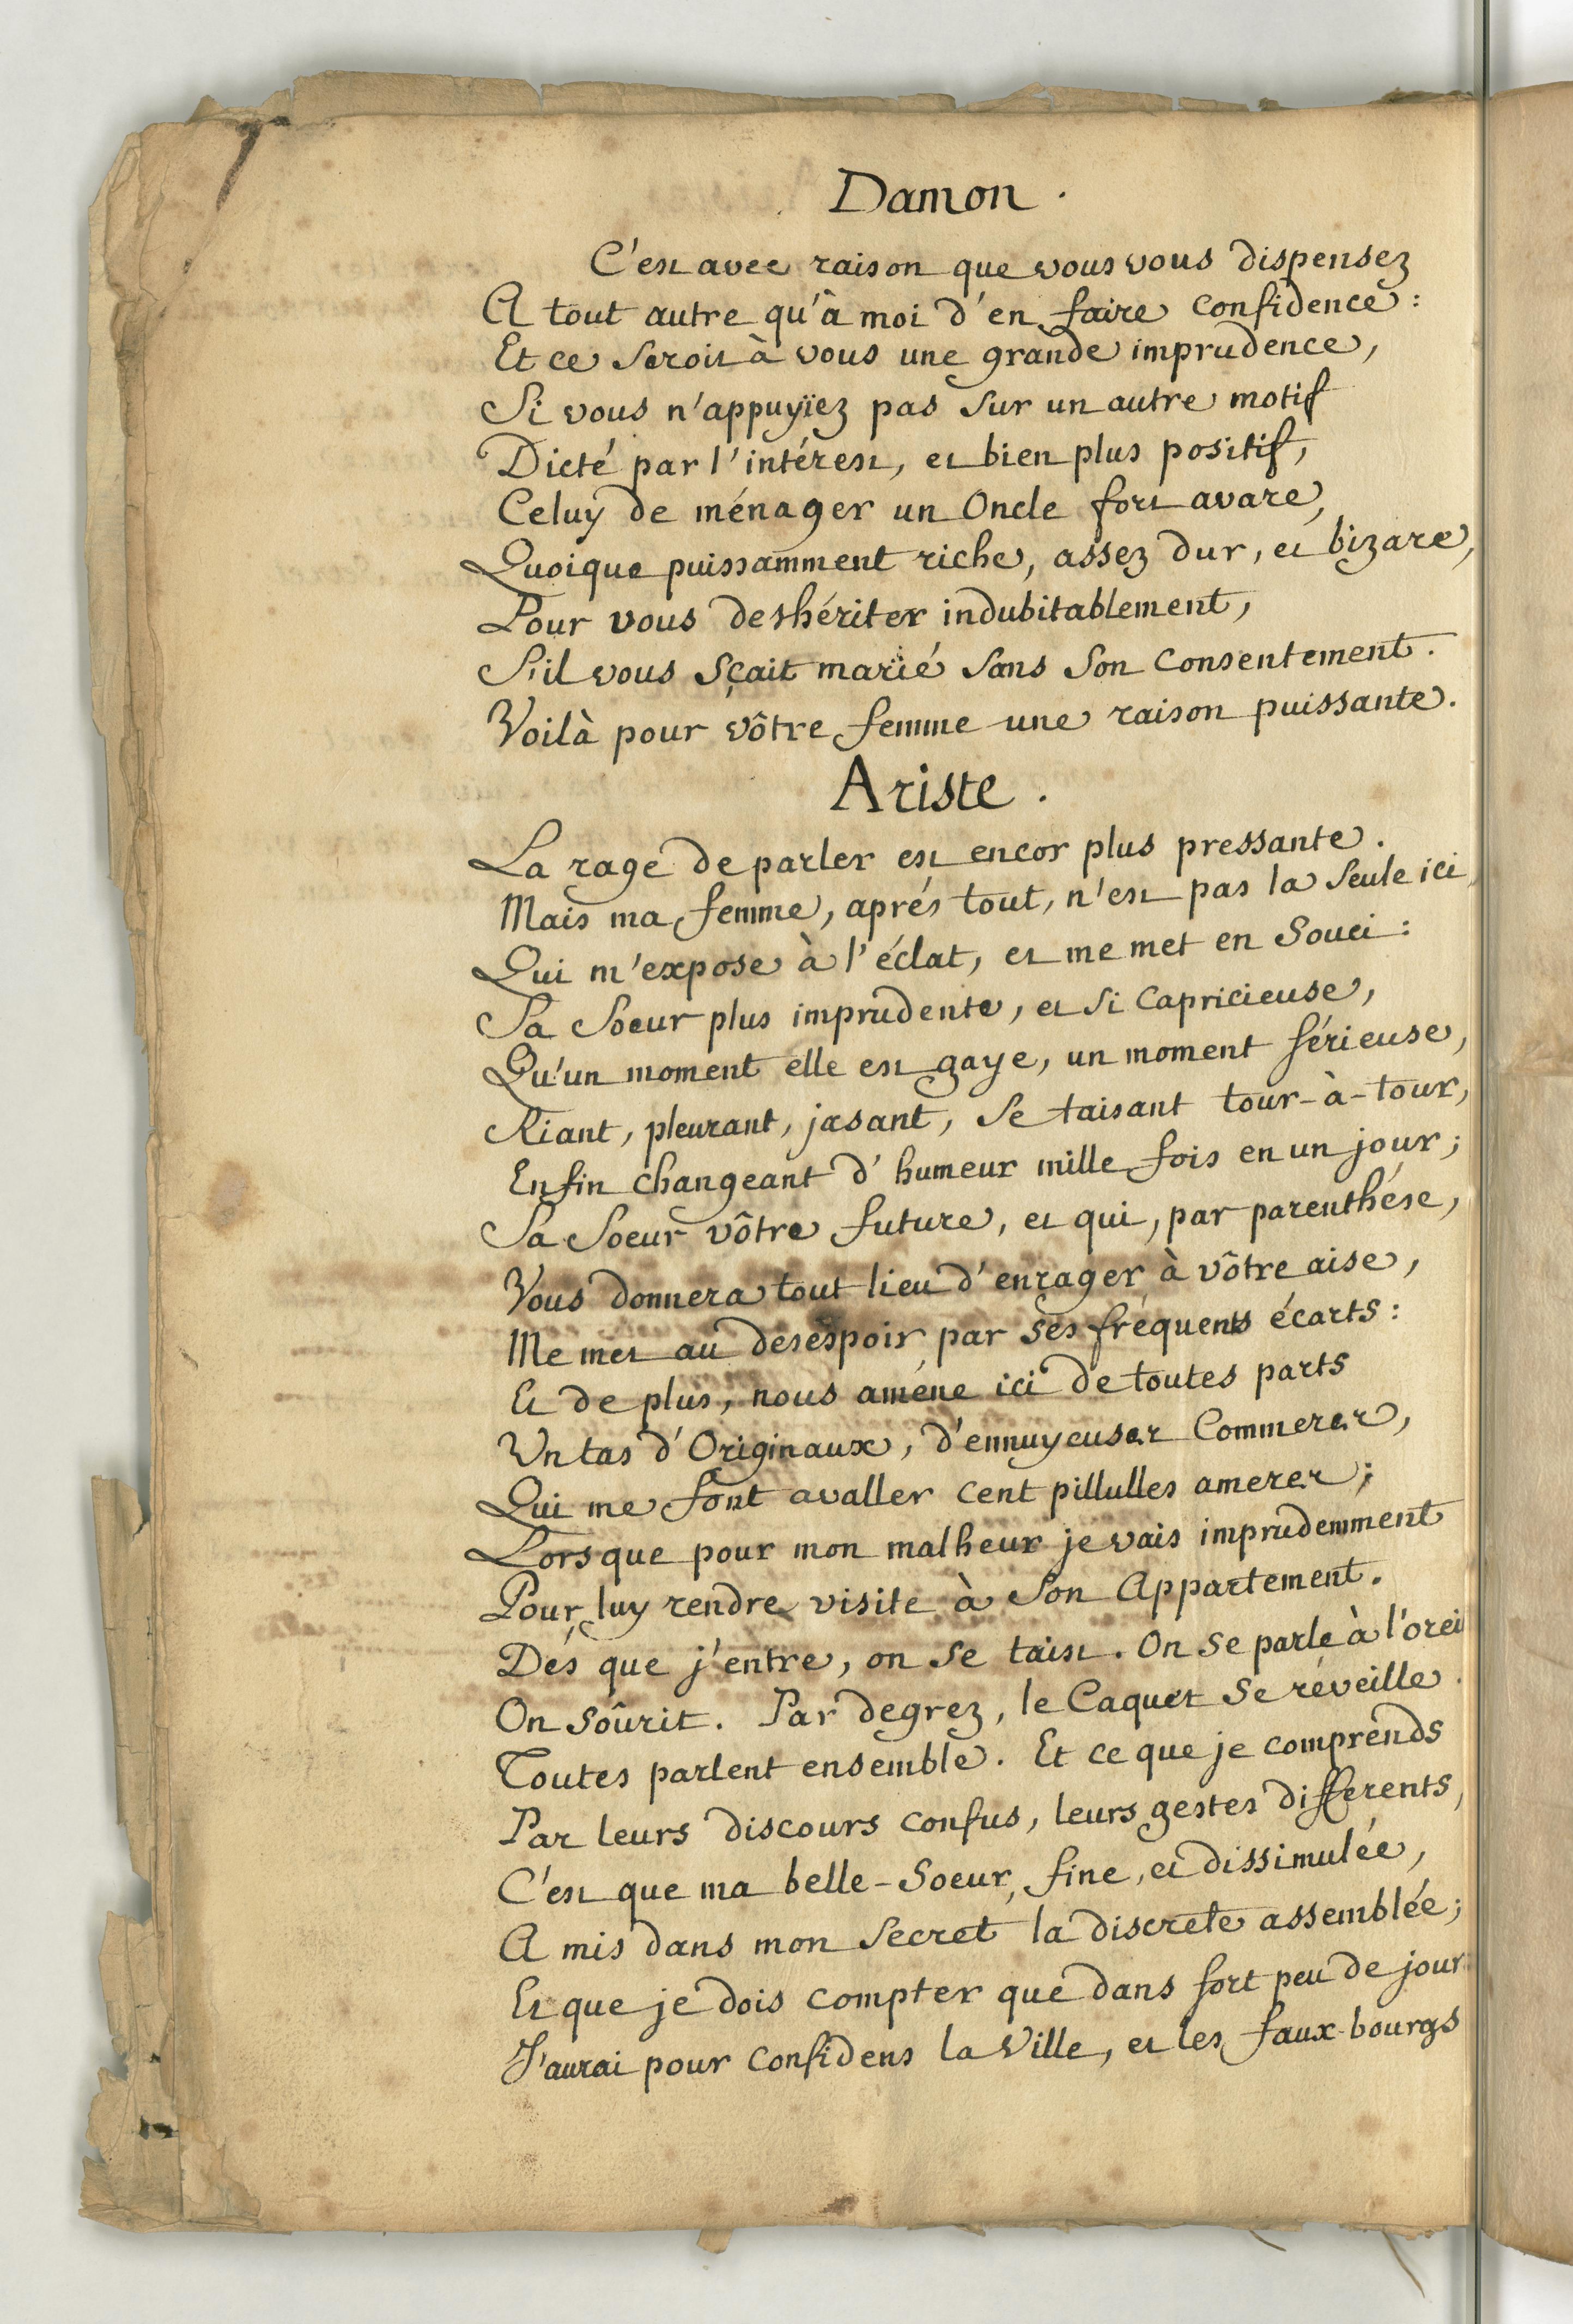 Damon.
C'est avec raison que vous vous dispensez
A tout autre qu'à moi d'en faire confidence :
Et ce seroit à vous une grande imprudence,
Si vous n'appuyïez pas sur un autre motif
Dicté par l'intérest, et bien plus positif,
Celuy de ménager un Oncle fort avare,
Quoique puissamment riche, assez dur, et bizare,
Pour vous deshériter indubitablement,
S'il vous sçait marié sans son consentement.
Voilà pour vôtre femme une raison puissante.
Ariste.
La rage de parler est encor plus pressante.
Mais ma femme, aprés tout, n'est pas la seule ici,
Qui m'expose à l'éclat, et me met en souci :
Sa Soeur plus imprudente, et si capricieuse,
Qu'un moment elle est gaye, un moment sérieuse,
Riant, pleurant, jasant, se taisant tour-à-tour,
Enfin changeant d'humeur mille fois en un jour ;
Sa Soeur vôtre future, et qui, par parenthése,
Vous donnera tout lieu d'enrager à vôtre aise,
Me met au desespoir par ses fréquents écarts :
Et de plus, nous améne ici de toutes parts
Un tas d'Originaux, d'ennuyeuses Commeres,
Qui me font avaller cent pillulles ameres ;
Lorsque pour mon malheur je vais imprudemment
Pour luy rendre visite à son Appartement.
Dés que j'entre, on se taist. On se parle à l'orei
On soûrit. Par degrez, le Caquet se réveille.
Toutes parlent ensemble. Et ce que je comprends
Par leurs discours confus, leurs gestes differents,
C'est que ma belle-Soeur, fine, et dissimulée,
A mis dans mon secret la discrete assemblée ;
Et que je dois compter que dans fort peu de jour
J'aurai pour confidens la Ville, et les faux-bourgs